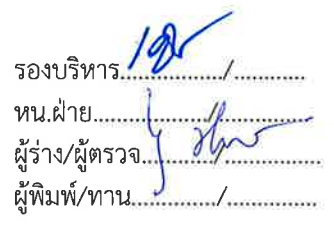 รองบริหาร............../..............
หน.ฝ่าย...................../..............
ผู้ร่าง/ผู้ตรวจ............../..............
ผู้พิมพ์/ทาน............../..............